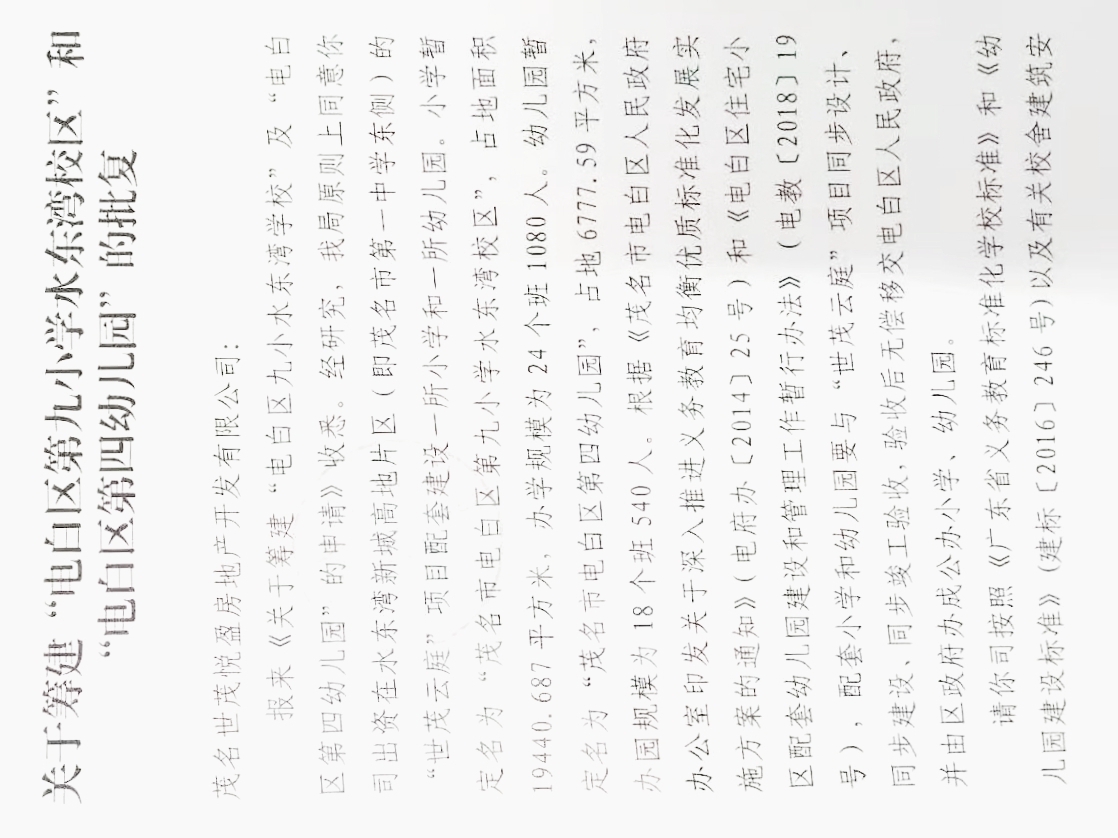 关于筹建“电白区第九小学水东湾校区”和
“电白区第四幼儿园”的批复
茂名世茂悦盈房地产开发有限公司：
报来《关于筹建“电白区九小水东湾学校”及“电白
区第四幼儿园”的申请》收悉。经研究，我局原则上同意你
司出资在水东湾新城高地片区（即茂名市第一中学东侧）的
“世茂云庭”项目配套建设一所小学和一所幼儿园。小学暂
定名为“茂名市电白区第九小学水东湾校区”，占地面积
19440.687平方米，办学规模为24个班1080人。幼儿园暂
定名为“茂名市电白区第四幼儿园”，占地6777.59平方米，
办园规模为18个班540人。根据《茂名市电白区人民政府
办公室印发关于深入推进义务教育均衡优质标准化发展实
施方案的通知》（电府办〔2014〕25号）和《电白区住宅小
区配套幼儿园建设和管理工作暂行办法》（电教〔2018〕19
号），配套小学和幼儿园要与“世茂云庭”项目同步设计、
同步建设、同步竣工验收，验收后无偿移交电白区人民政府，
并由区政府办成公办小学、幼儿园。
请你司按照《广东省义务教育标准化学校标准》和《幼
儿园建设标准》（建标〔2016〕246号）以及有关校舍建筑安